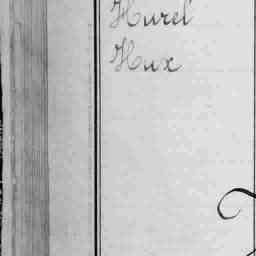 Hurel
Hux